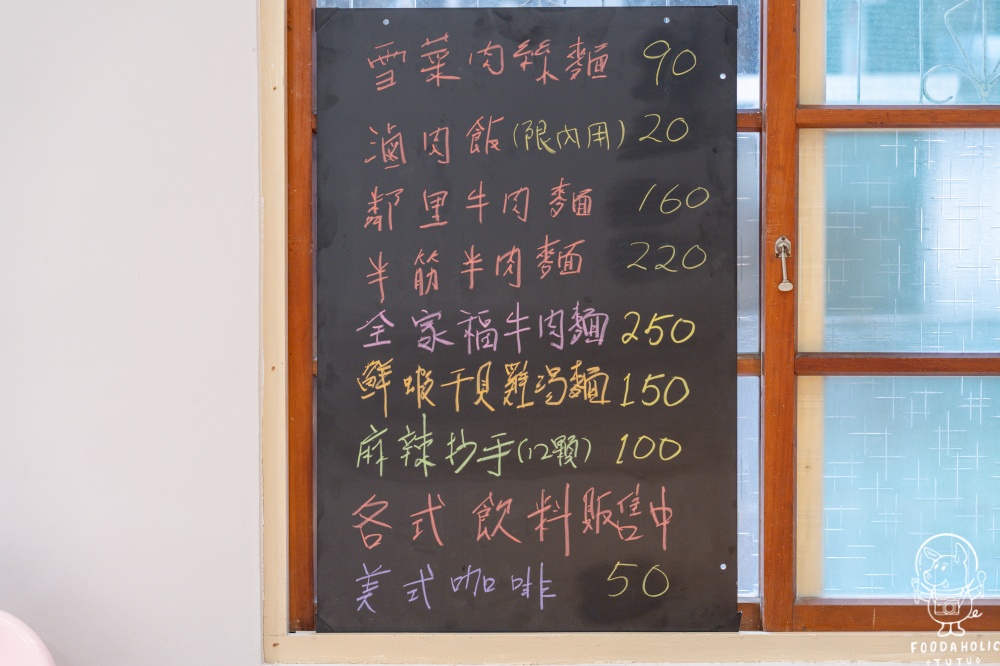 雪菜肉絲麵 90
滷肉飯(限內用) 20
鄰里牛肉麵 160
半筋半肉麵 220
全家福牛肉麵 250
鮮蝦干貝雞湯麵 150
麻辣抄手(12顆) 100
各式飲料販售中
美式咖啡 50
FOODAHOLIC
TUTUO